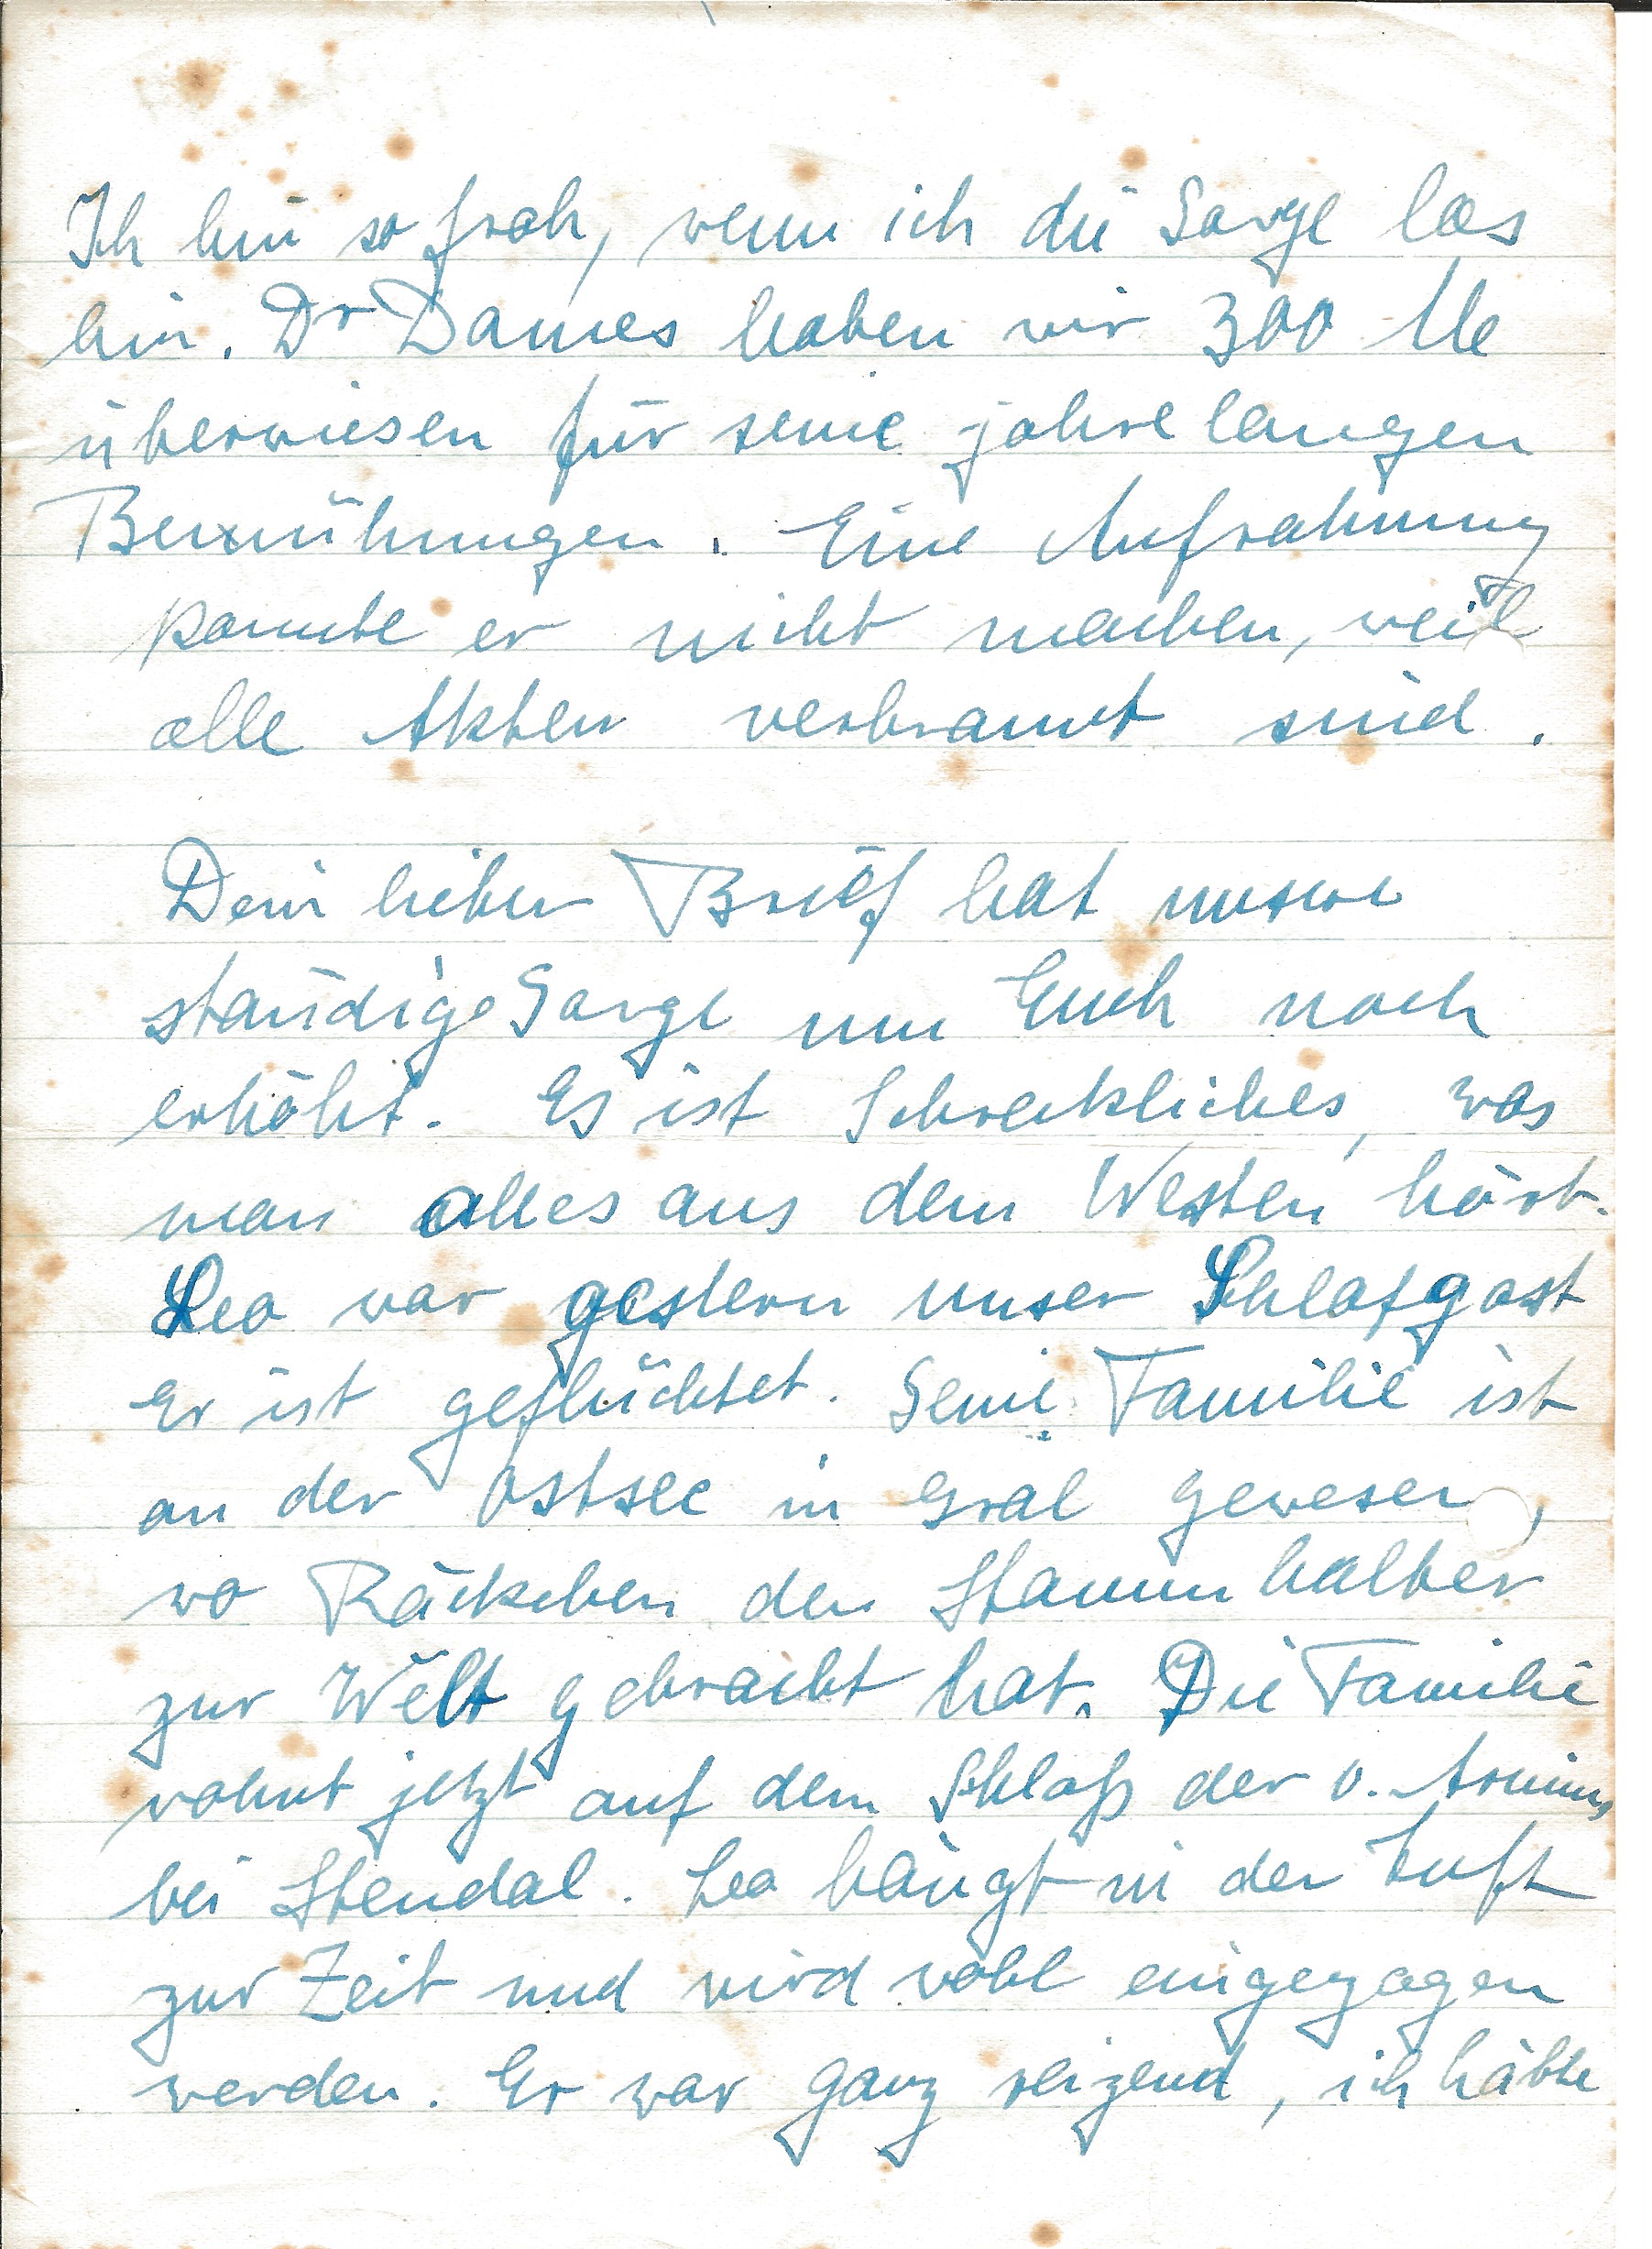 Ich bin so froh, wenn ich die Sorge los
bin. Dr Dames haben wir 300 M
überwiesen für seine jahrelangen
Bemühungen. Eine Aufrahmung
konnte er nicht machen, weil
alle Akten verbrannt sind.
Dein lieber Brief hat unsere
ständige Sorge um Euch noch
erhöht. Es ist Schreckliches, was
man alles aus dem Westen hört.
Leo war gestern unser Schlafgast
Er ist geflüchtet. Seine Familie ist
an der Ostsee in Gral gewesen,
wo Räckchen den Stammhalter
zur Welt gebracht hat. Die Familie
wohnt jetzt auf dem Schloß der v. Arnims
bei Stendal. Leo hängt in der Luft
zur Zeit und wird wohl eingezogen
werden. Er war ganz reizend, ich hätte